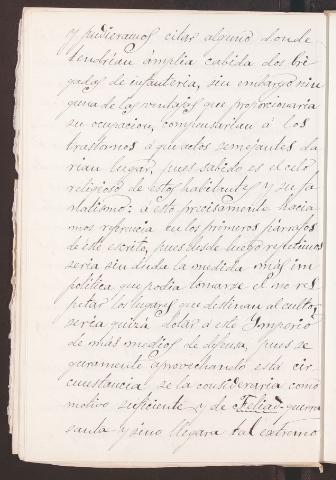 y pudieramos citar alguno donde
tendrían ámplia cabida dos bri
gadas de infanteria, sin embargo nin
guna de las ventajas que proporcionaria
su ocupacion, compensarían á los
trastornos á que actos semejantes da
rian lugar, pues sabido es el celo
religioso de estos habitantes y su fa
natismo: á esto precisamente hacia
mos referencia en los primeros párrafos
de este escrito, pues desde luego repetimos
seria sin duda la medida más im
política que podia tomarse el no res
petar los lugares que destinan al culto,
seria quizá dotar á este Ymperio
de más medios de defensa, pues se
guramente aprovechando esta cir
cunstancia se la consideraria como
motivo suficiente y de guerra
santa y sino llegara tal extremo